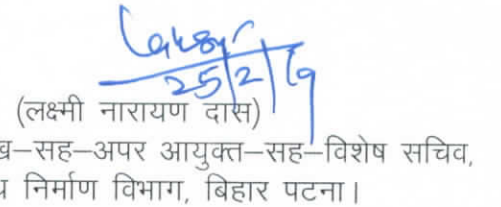 25/2/19
(लक्ष्मी नारायण दास)
–सह–अपर आयुक्त–सह–विशेष सचिव,
निर्माण विभाग, बिहार पटना।